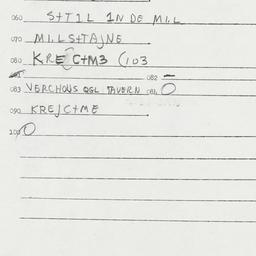 060 S+T1L 1N DE MIL
070 MILS+TAJNE
080 KREJC+M3 (103
082 –
083 VERCHOUS QGL TAVERN 084 O
090 KREJC+ME
100 O